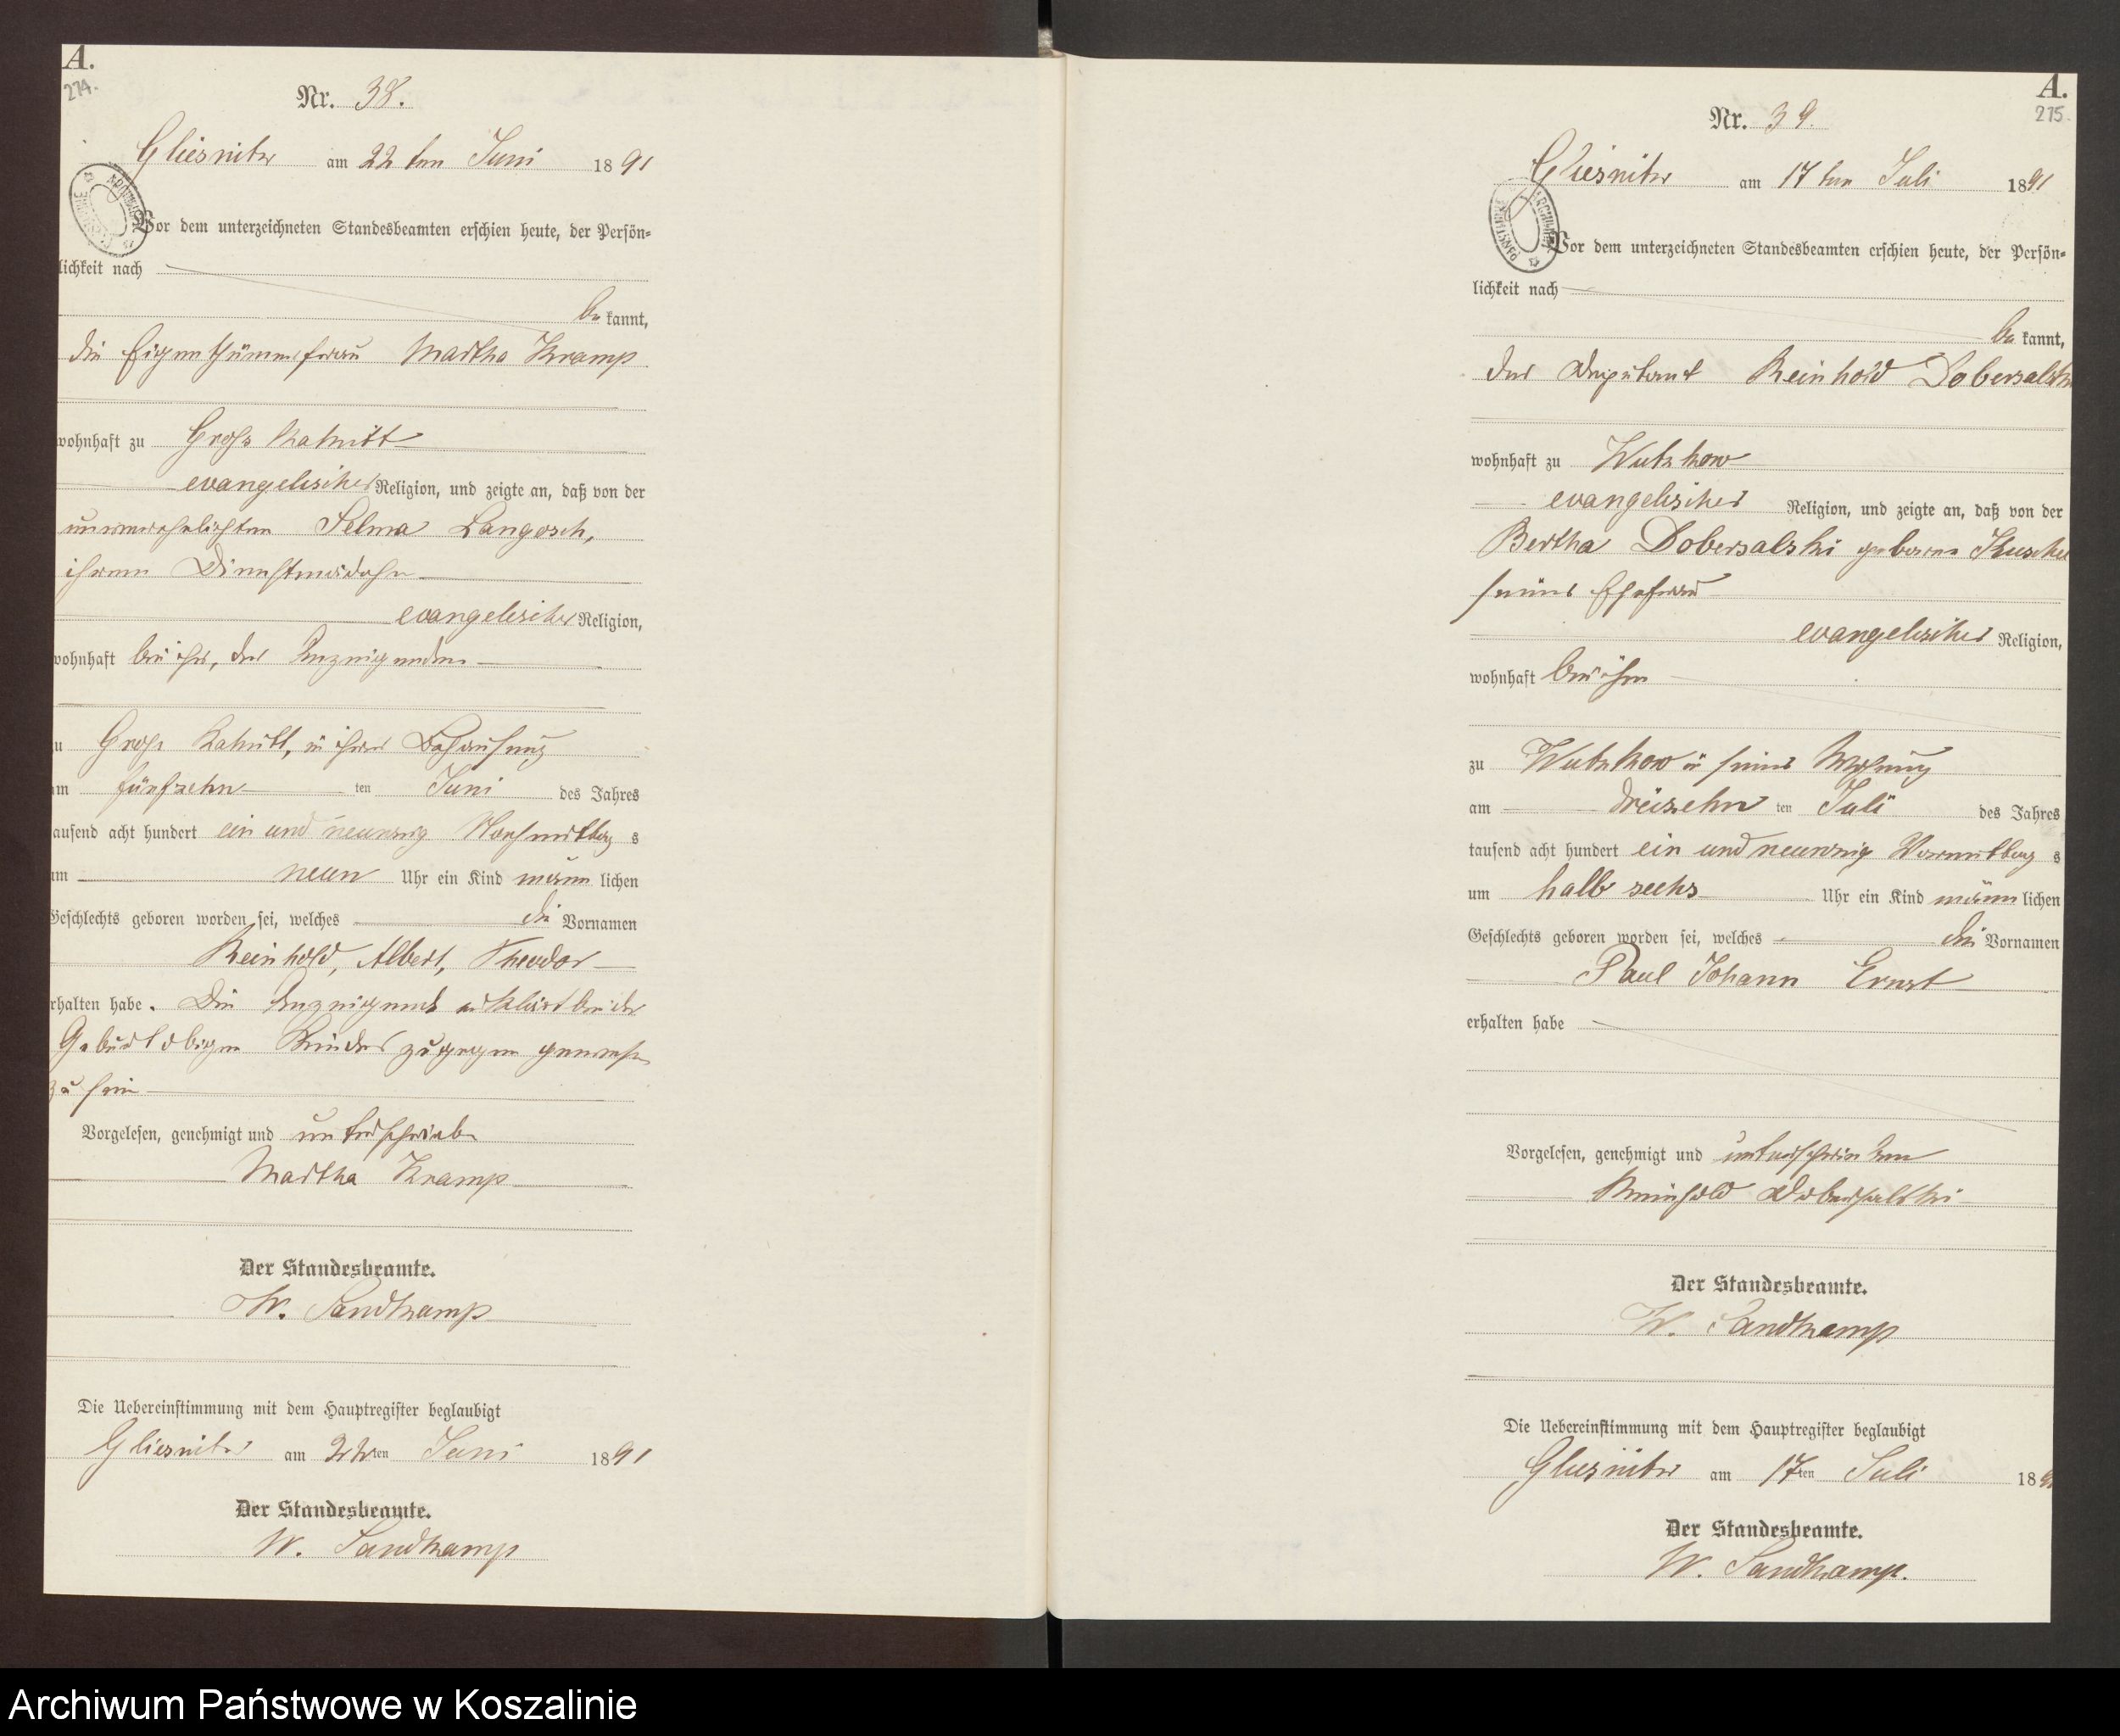 A.
274.
Nr. 38.
Gliesnitz am 22 ten Juni 1891
Vor dem unterzeichneten Standesbeamten erschien heute, der Persön=
lichkeit nach
be kannt,
die Eigenthümerfrau Martha Kramp
wohnhaft zu Groß
evangelischer Religion, und zeigte an, daß von der
unverehelichten Selma Langosch,
ihrem Dienstmädchen
evangelischer Religion,
wohnhaft bei ihr, der Anzeigenden
zu Groß in ihrer Behausung
am fünfzehn ten Juni des Jahres
tausend acht hundert ein und neunzig Nachmittag s
um neun Uhr ein Kind männ lichen
Geschlechts geboren worden sei, welches die Vornamen
Reinhold, Albert, Theodor
erhalten habe. Die Anzeigende erklärt bei der
Geburt obigen Kindes zugegen gewesen
zu sein
Vorgelesen, genehmigt und unterschrieben
Martha Kramp
Der Standesbeamte.
W. Sandkamp
Die Uebereinstimmung mit dem Hauptregister beglaubigt
Gliesnitz am 22 ten Juni 1891
Der Standesbeamte.
W. Sandkamp
A.
275.
Nr. 39.
Gliesnitz am 17 ten Juli 1891
Vor dem unterzeichneten Standesbeamten erschien heute, der Persön=
lichkeit nach
be kannt,
der Deputant Reinhold Dobersalski
wohnhaft zu Wutzkow
evangelischer Religion, und zeigte an, daß von der
Bertha Dobersalski geborene
seiner Ehefrau
evangelischer Religion,
wohnhaft bei ihm
zu Wutzkow in seiner Wohnung
am dreizehn ten Juli des Jahres
tausend acht hundert ein und neunzig Vormittag s
um halb sechs Uhr ein Kind männ lichen
Geschlechts geboren worden sei, welches die Vornamen
Paul Johann Ernst
erhalten habe
Vorgelesen, genehmigt und unterschrieben
Reinhold Dobersalski
Der Standesbeamte.
W. Sandkamp
Die Uebereinstimmung mit dem Hauptregister beglaubigt
Gliesnitz am 17 ten Juli 1891
Der Standesbeamte.
W. Sandkamp.
Archiwum Państwowe w Koszalinie